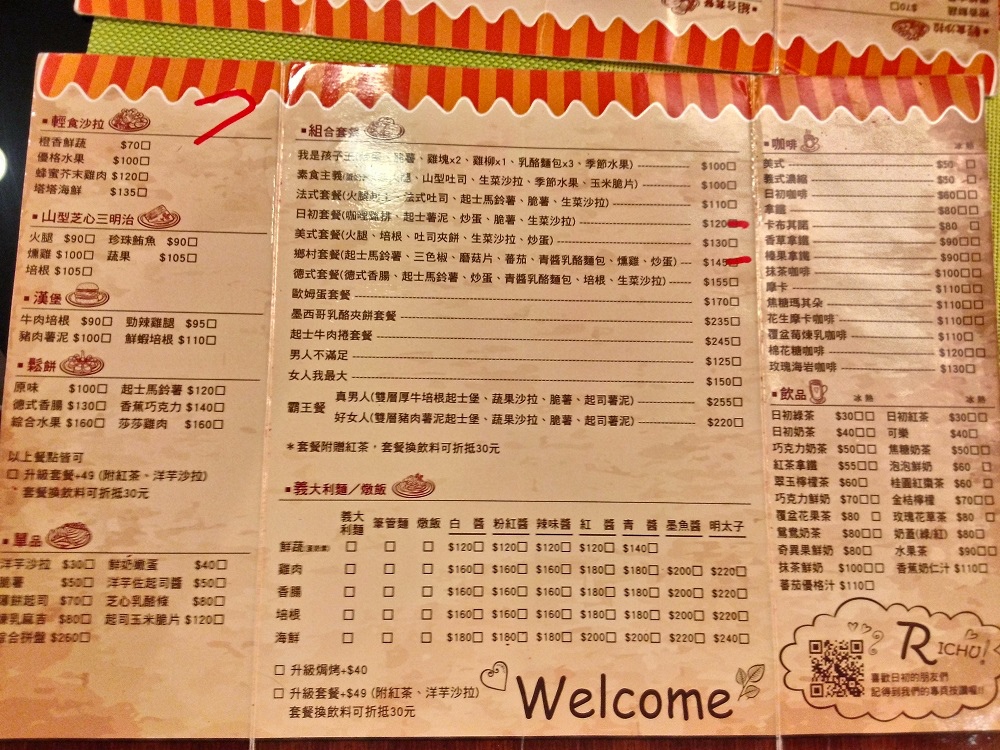 組合套餐
輕食沙拉
$70
輕食沙拉
橙香鮮蔬 $70□
優格水果 $100□
蜂蜜芥末雞肉 $120□
塔塔海鮮 $135□
山型芝心三明治
火腿 $90□ 珍珠鮪魚 $90□
燻雞 $100□ 蔬果 $105□
培根 $105□
漢堡
牛肉培根 $90□ 勁辣雞腿 $95□
豬肉薯泥 $100□ 鮮蝦培根 $110□
鬆餅
原味 $100□ 起士馬鈴薯 $120□
德式香腸 $130□ 香蕉巧克力 $140□
綜合水果 $160□ 莎莎雞肉 $160□
以上餐點皆可
□ 升級套餐+49 (附紅茶、洋芋沙拉)
套餐換飲料可折抵30元
單品
洋芋沙拉 $30□ 鮮奶嫩蛋 $40□
脆薯 $50□ 洋芋佐起司醬 $50□
薄餅起司 $70□ 芝心乳酪條 $80□
煉乳麻吉 $80□ 起司玉米脆片 $120□
綜合拼盤 $260□
組合套餐
我是孩子王 脆薯、雞塊x2、雞柳x1、乳酪麵包x3、季節水果) $100□
素食主義 、山型吐司、生菜沙拉、季節水果、玉米脆片) $100□
法式套餐(火腿起士法式吐司、起士馬鈴薯、脆薯、生菜沙拉) $110□
日初套餐(咖哩雞排、起士薯泥、炒蛋、脆薯、生菜沙拉) $120
美式套餐(火腿、培根、吐司夾餅、生菜沙拉、炒蛋) $130□
鄉村套餐(起士馬鈴薯、三色椒、磨菇片、蕃茄、青醬乳酪麵包、燻雞、炒蛋) $145
德式套餐(德式香腸、起士馬鈴薯、炒蛋、青醬乳酪麵包、培根、生菜沙拉) $155□
歐姆蛋套餐 $170□
墨西哥乳酪夾餅套餐 $235□
起士牛肉捲套餐 $245□
男人不滿足 $125□
女人我最大 $150□
霸王餐 真男人(雙層厚牛培根起士堡、蔬果沙拉、脆薯、起司薯泥) $255□
好女人(雙層豬肉薯泥起士堡、蔬果沙拉、脆薯、起司薯泥) $220□
＊套餐附贈紅茶，套餐換飲料可折抵30元
義大利麵／燉飯
義大利麵 筆管麵 燉飯 白醬 粉紅醬 辣味醬 紅醬 青醬 墨魚醬 明太子
鮮蔬 □ □ □ $120□ $120□ $120□ $120□ $140□
雞肉 □ □ □ $160□ $160□ $160□ $180□ $180□ $200□ $220□
香腸 □ □ □ $160□ $160□ $160□ $180□ $180□ $200□ $220□
培根 □ □ □ $160□ $160□ $160□ $180□ $180□ $200□ $220□
海鮮 □ □ □ $180□ $180□ $180□ $200□ $200□ $220□ $240□
□ 升級焗烤+$40
□ 升級套餐+$49 (附紅茶、洋芋沙拉)
套餐換飲料可折抵30元
Welcome
咖啡 冰 熱
美式 $50 □
義式濃縮 $50 □
日初咖啡 $60□□
拿鐵 $80□□
卡布其諾 $80 □
香草拿鐵 $90□□
榛果拿鐵 $90□□
抹茶咖啡 $100□□
摩卡 $110□□
焦糖瑪其朵 $110□□
花生摩卡咖啡 $110□□
覆盆莓煉乳咖啡 $110□
棉花糖咖啡 $120□□
玫瑰海岩咖啡 $130□
飲品 冰 熱 冰 熱
日初綠茶 $30□□ 日初紅茶 $30□□
日初奶茶 $40□□ 可樂 $40□
巧克力奶茶 $50□□ 焦糖奶茶 $50□□
紅茶拿鐵 $55□□ 泡泡鮮奶 $60 □
翠玉檸檬茶 $60□ 桂圓紅棗茶 $60 □
巧克力鮮奶 $70□□ 金桔檸檬 $70□□
覆盆花果茶 $80 □ 玫瑰花草茶 $80 □
鴛鴦奶茶 $80□□ 奶蓋(綠/紅) $80□
奇異果鮮奶 $80□ 水果茶 $90□□
抹茶鮮奶 $100□□ 香蕉奶仁汁 $110□
蕃茄優格汁 $110□
RICHU!
喜歡日初的朋友們
記得到我們的專頁按讚喔!!